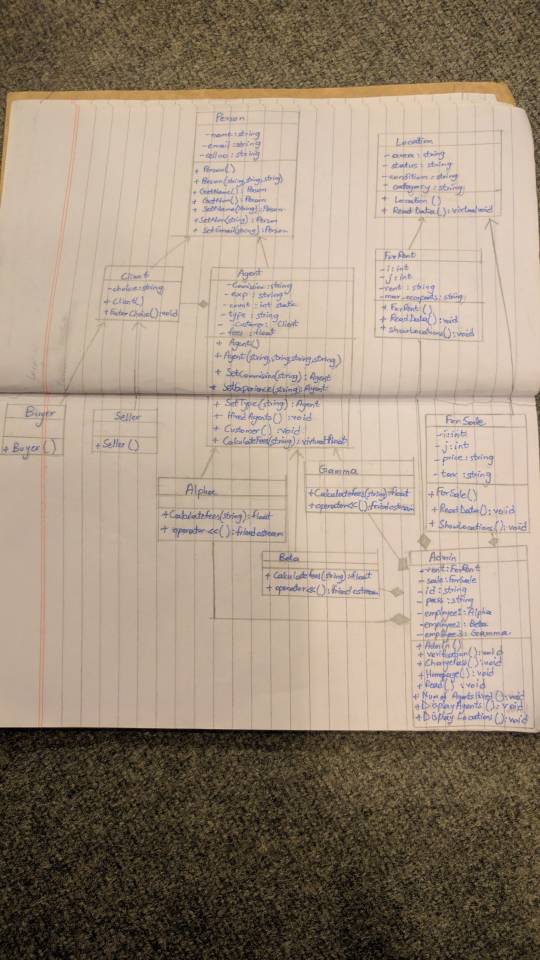 Person
- name : string
- email : string
- cellno : string
+ Person()
+ Person(string, string, string)
+ GetName() : Person
+ GetNum() : Person
+ SetName(string) : Person
+ SetNum(string) : Person
+ SetEmail(string) : Person
Location
- area : string
- status : string
- condition : string
- category : string
+ Location ()
+ ReadData() : virtual void
Client
- choice : string
+ Client()
+ EnterChoice() : void
Agent
- Commision : string
- exp : string
- count : int static
- type : string
- Customer : Client
- fees : float
+ Agent()
+ Agent(string, string, string, string)
+ SetCommision(string) : Agent
+ SetExperience(string) : Agent
+ SetType(string) : Agent
+ HiredAgents() : void
+ Customer() : void
+ CalculateFees(string) : virtual float
ForRent
- i : int
- j : int
- rent : string
- : string
+ ForRent()
+ ReadData() : void
+ ShowLocations() : void
Buyer
+ Buyer()
Seller
+ Seller()
ForSale
- i : int
- j : int
- price : string
- tax : string
+ ForSale()
+ ReadData() : void
+ ShowLocations() : void
Alpha
+ CalculateFees(string) : float
+ operator <<() : friend ostream
Gamma
+ CalculateFees(string) : float
+ operator <<() : friend ostream
Beta
+ CalculateFees(string) : float
+ operator <<() : friend ostream
Admin
- rent : ForRent
- sale : ForSale
- id : string
- pass : string
- employee1 : Alpha
- employee2 : Beta
- employee3 : Gamma
+ Admin()
+ () : void
+ () : void
+ Homepage() : void
+ Read() : void
+ Num of Agents Hired() : void
+ Display Agents() : void
+ Display Locations() : void